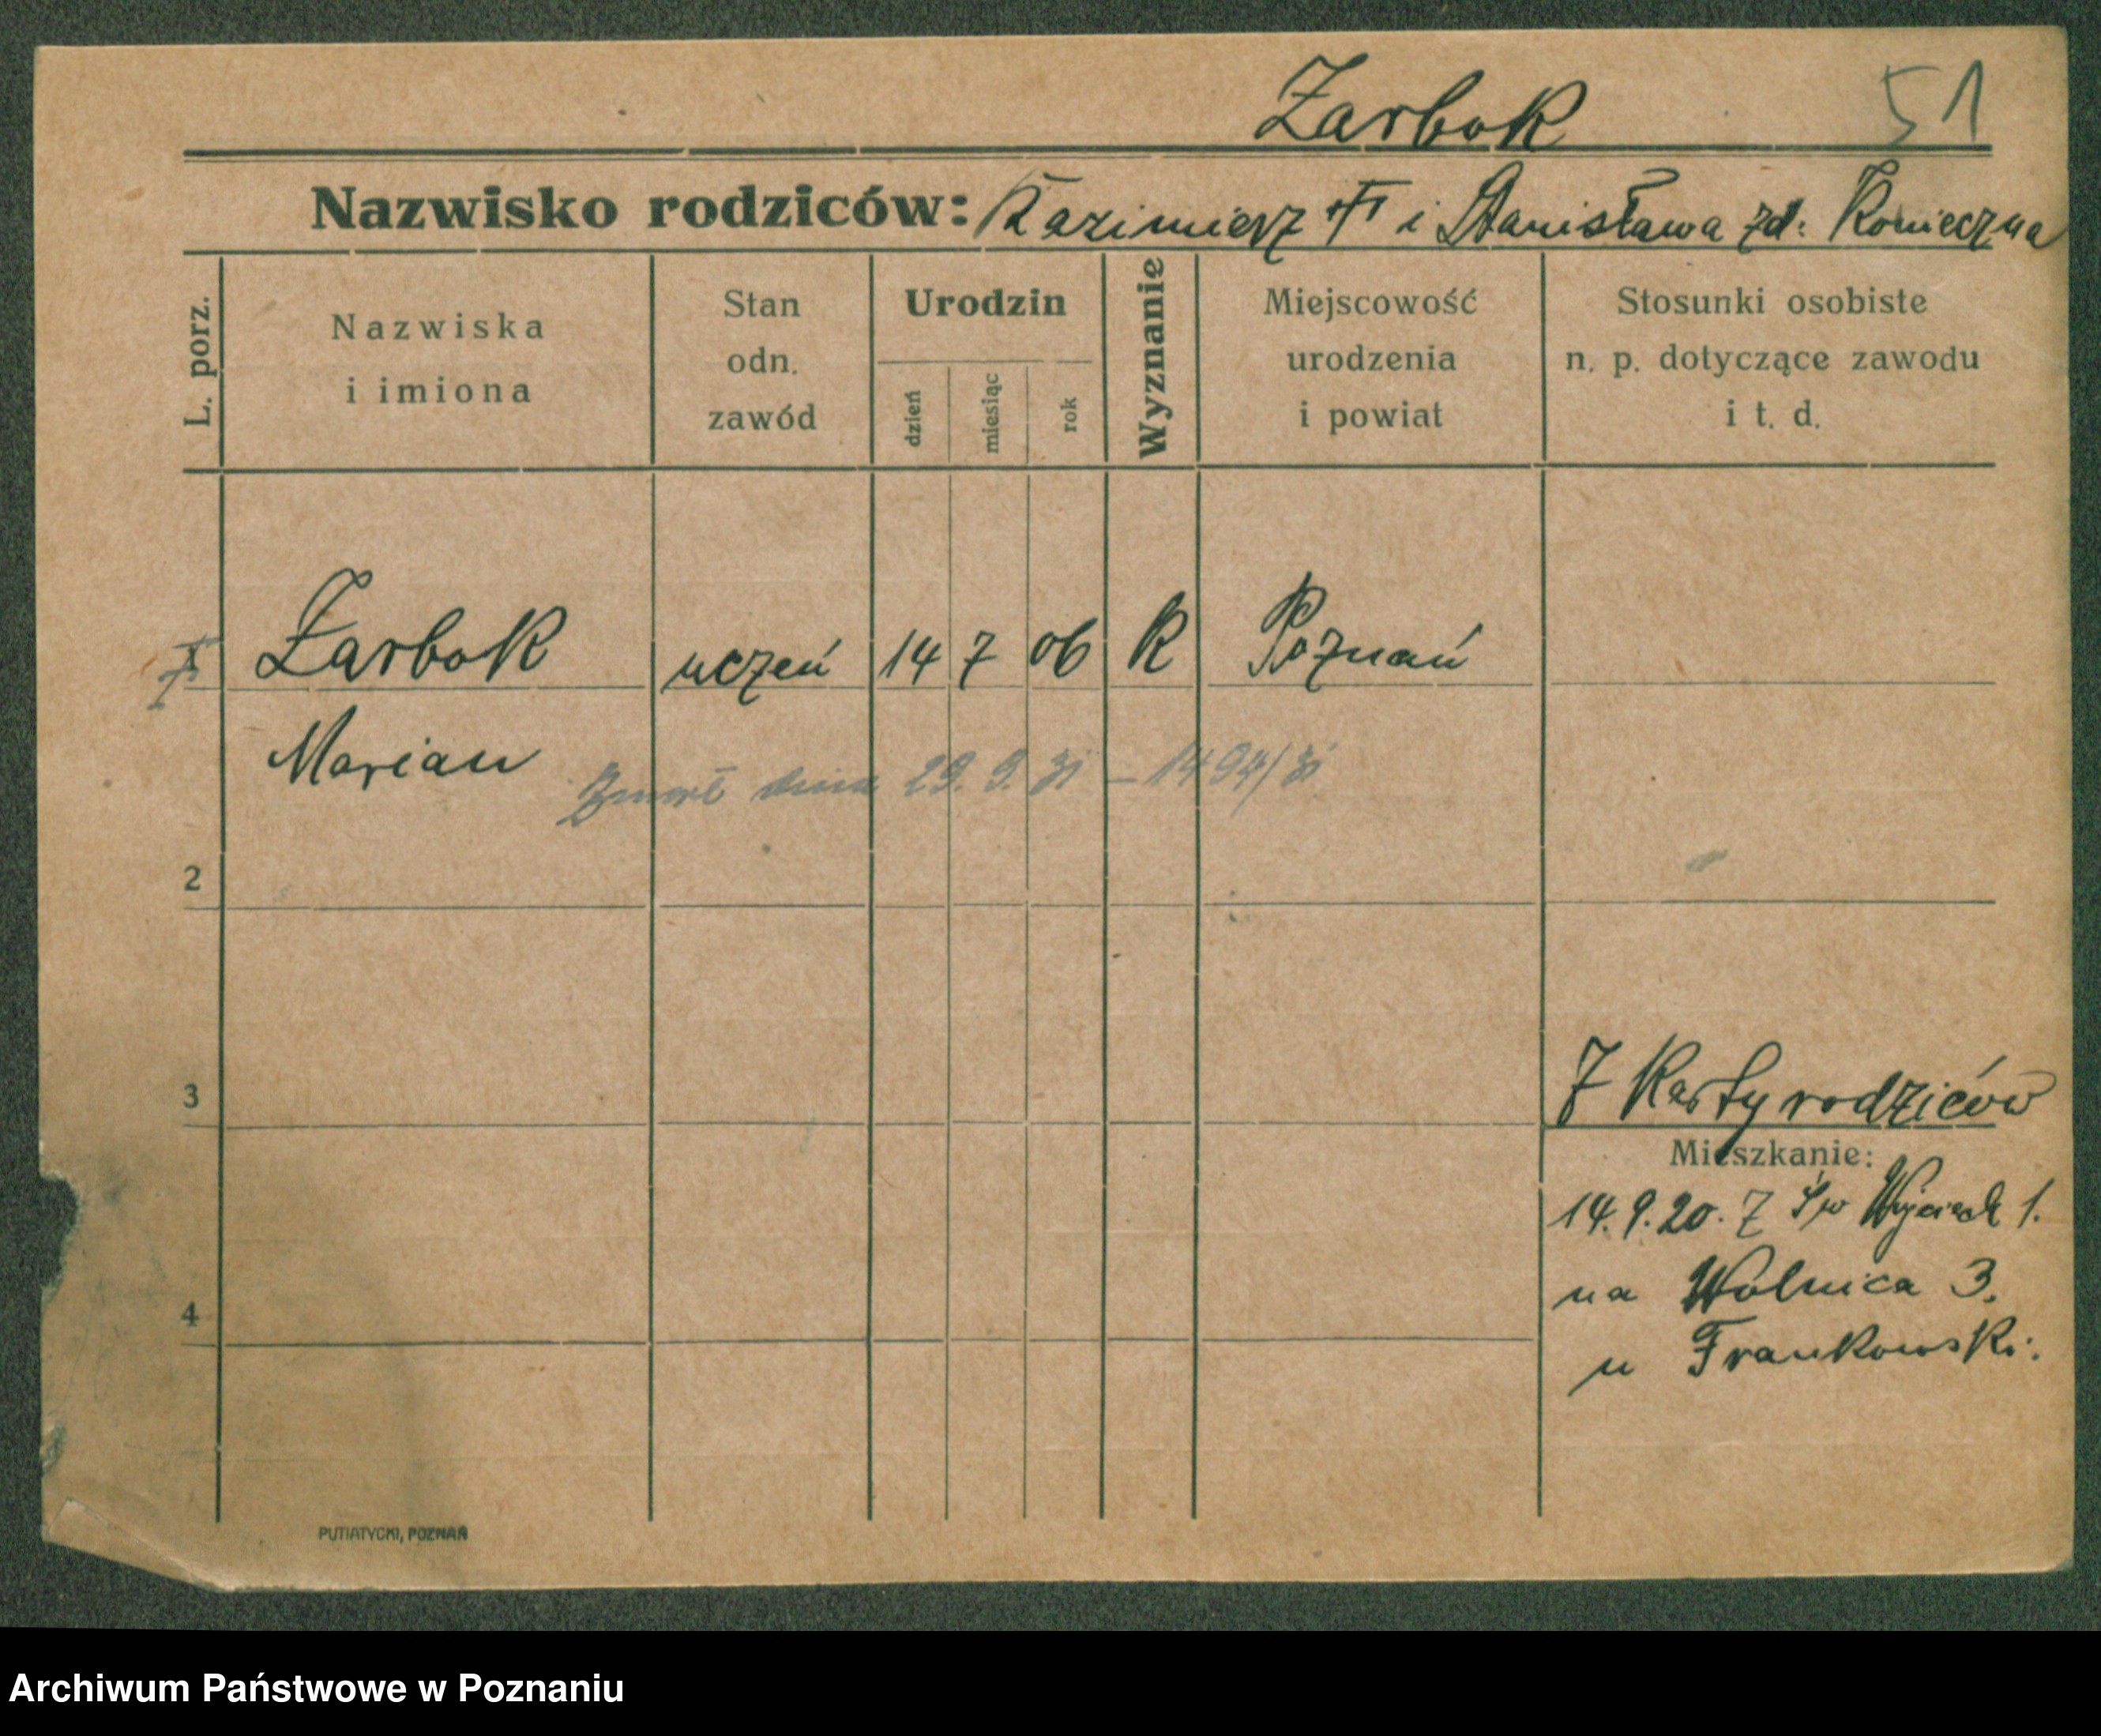 Zarbok 51
Nazwisko rodziców: Kazimierz i Stanisława zd: Konieczna
L. porz.
Nazwiska
i imiona
Stan
odn.
zawód
Urodzin
dzień
miesiąc
rok
Wyznanie
Miejscowość
urodzenia
i powiat
Stosunki osobiste
n. p. dotyczące zawodu
i t. d.
Zarbok uczeń 14 7 06 R Poznań
Marian
Zmarł dnia 29. 9. 31 – 1494/31
2
3
Z Karty rodziców
Mieszkanie:
14.9.20. Z Św Wojciech 1.
na Wolnica 3.
4
u Frankowski.
PUTIATYCKI, POZNAŃ
Archiwum Państwowe w Poznaniu